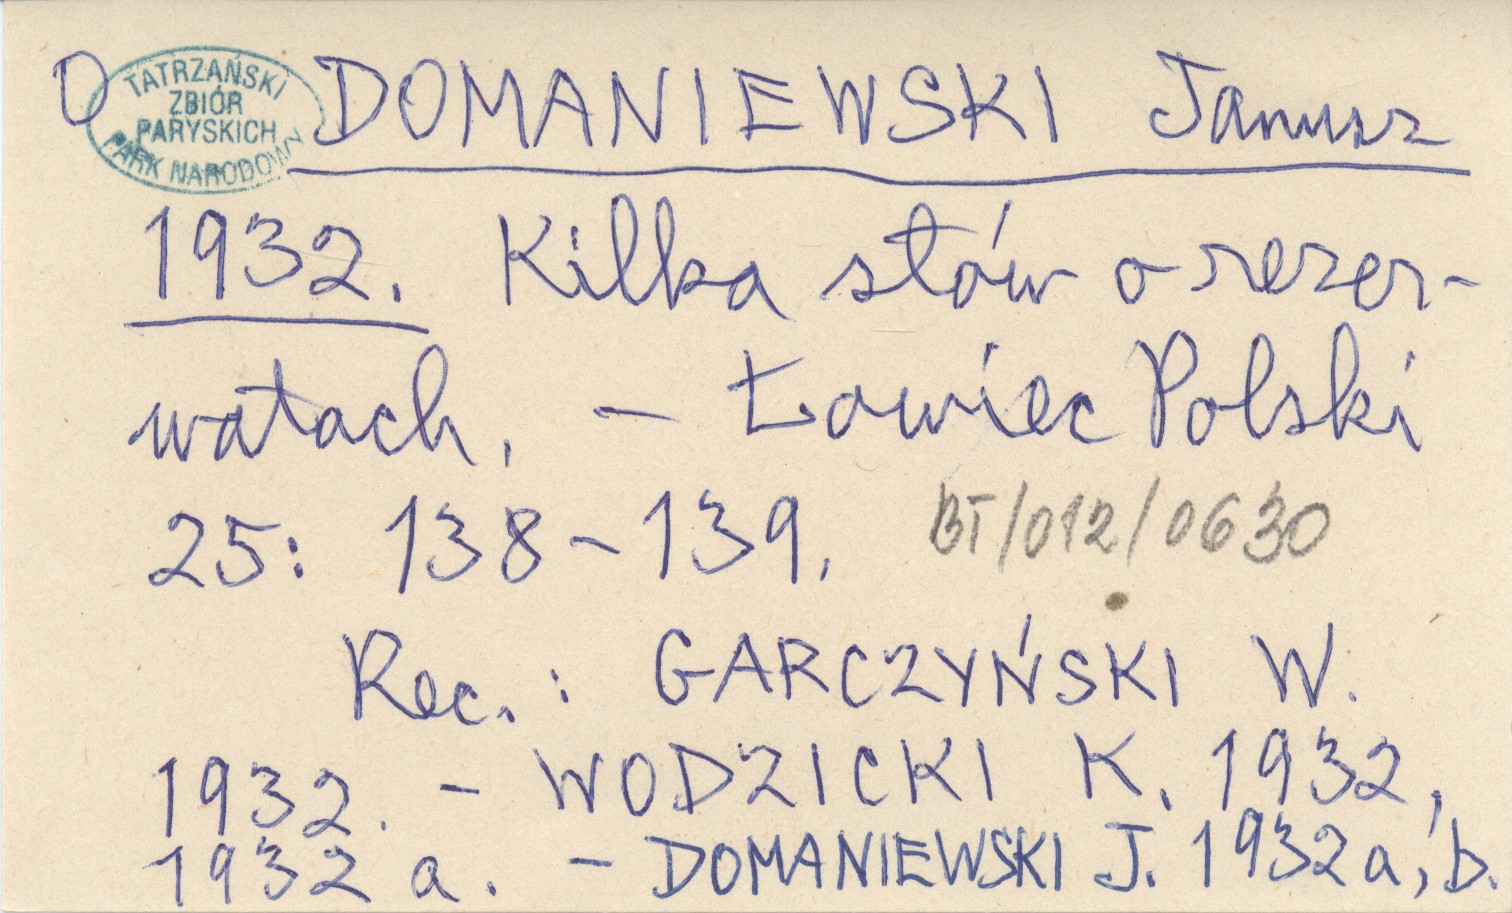 O
TATRZAŃSKI
ZBIÓR
PARYSKICH
PARK NARODOWY
DOMANIEWSKI Janusz
1932. Kilka słów o rezer-
watach. - Łowiec Polski
25: 138-139.
BT/012/0630
Rec.: GARCZYŃSKI W.
1932. - WODZICKI K. 1932,
1932 a. - DOMANIEWSKI J. 1932a, b.